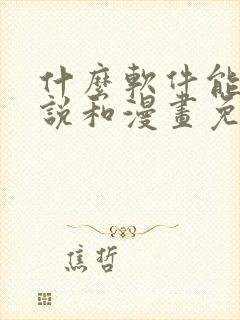 什麼軟件能
說和漫畫免
焦哲